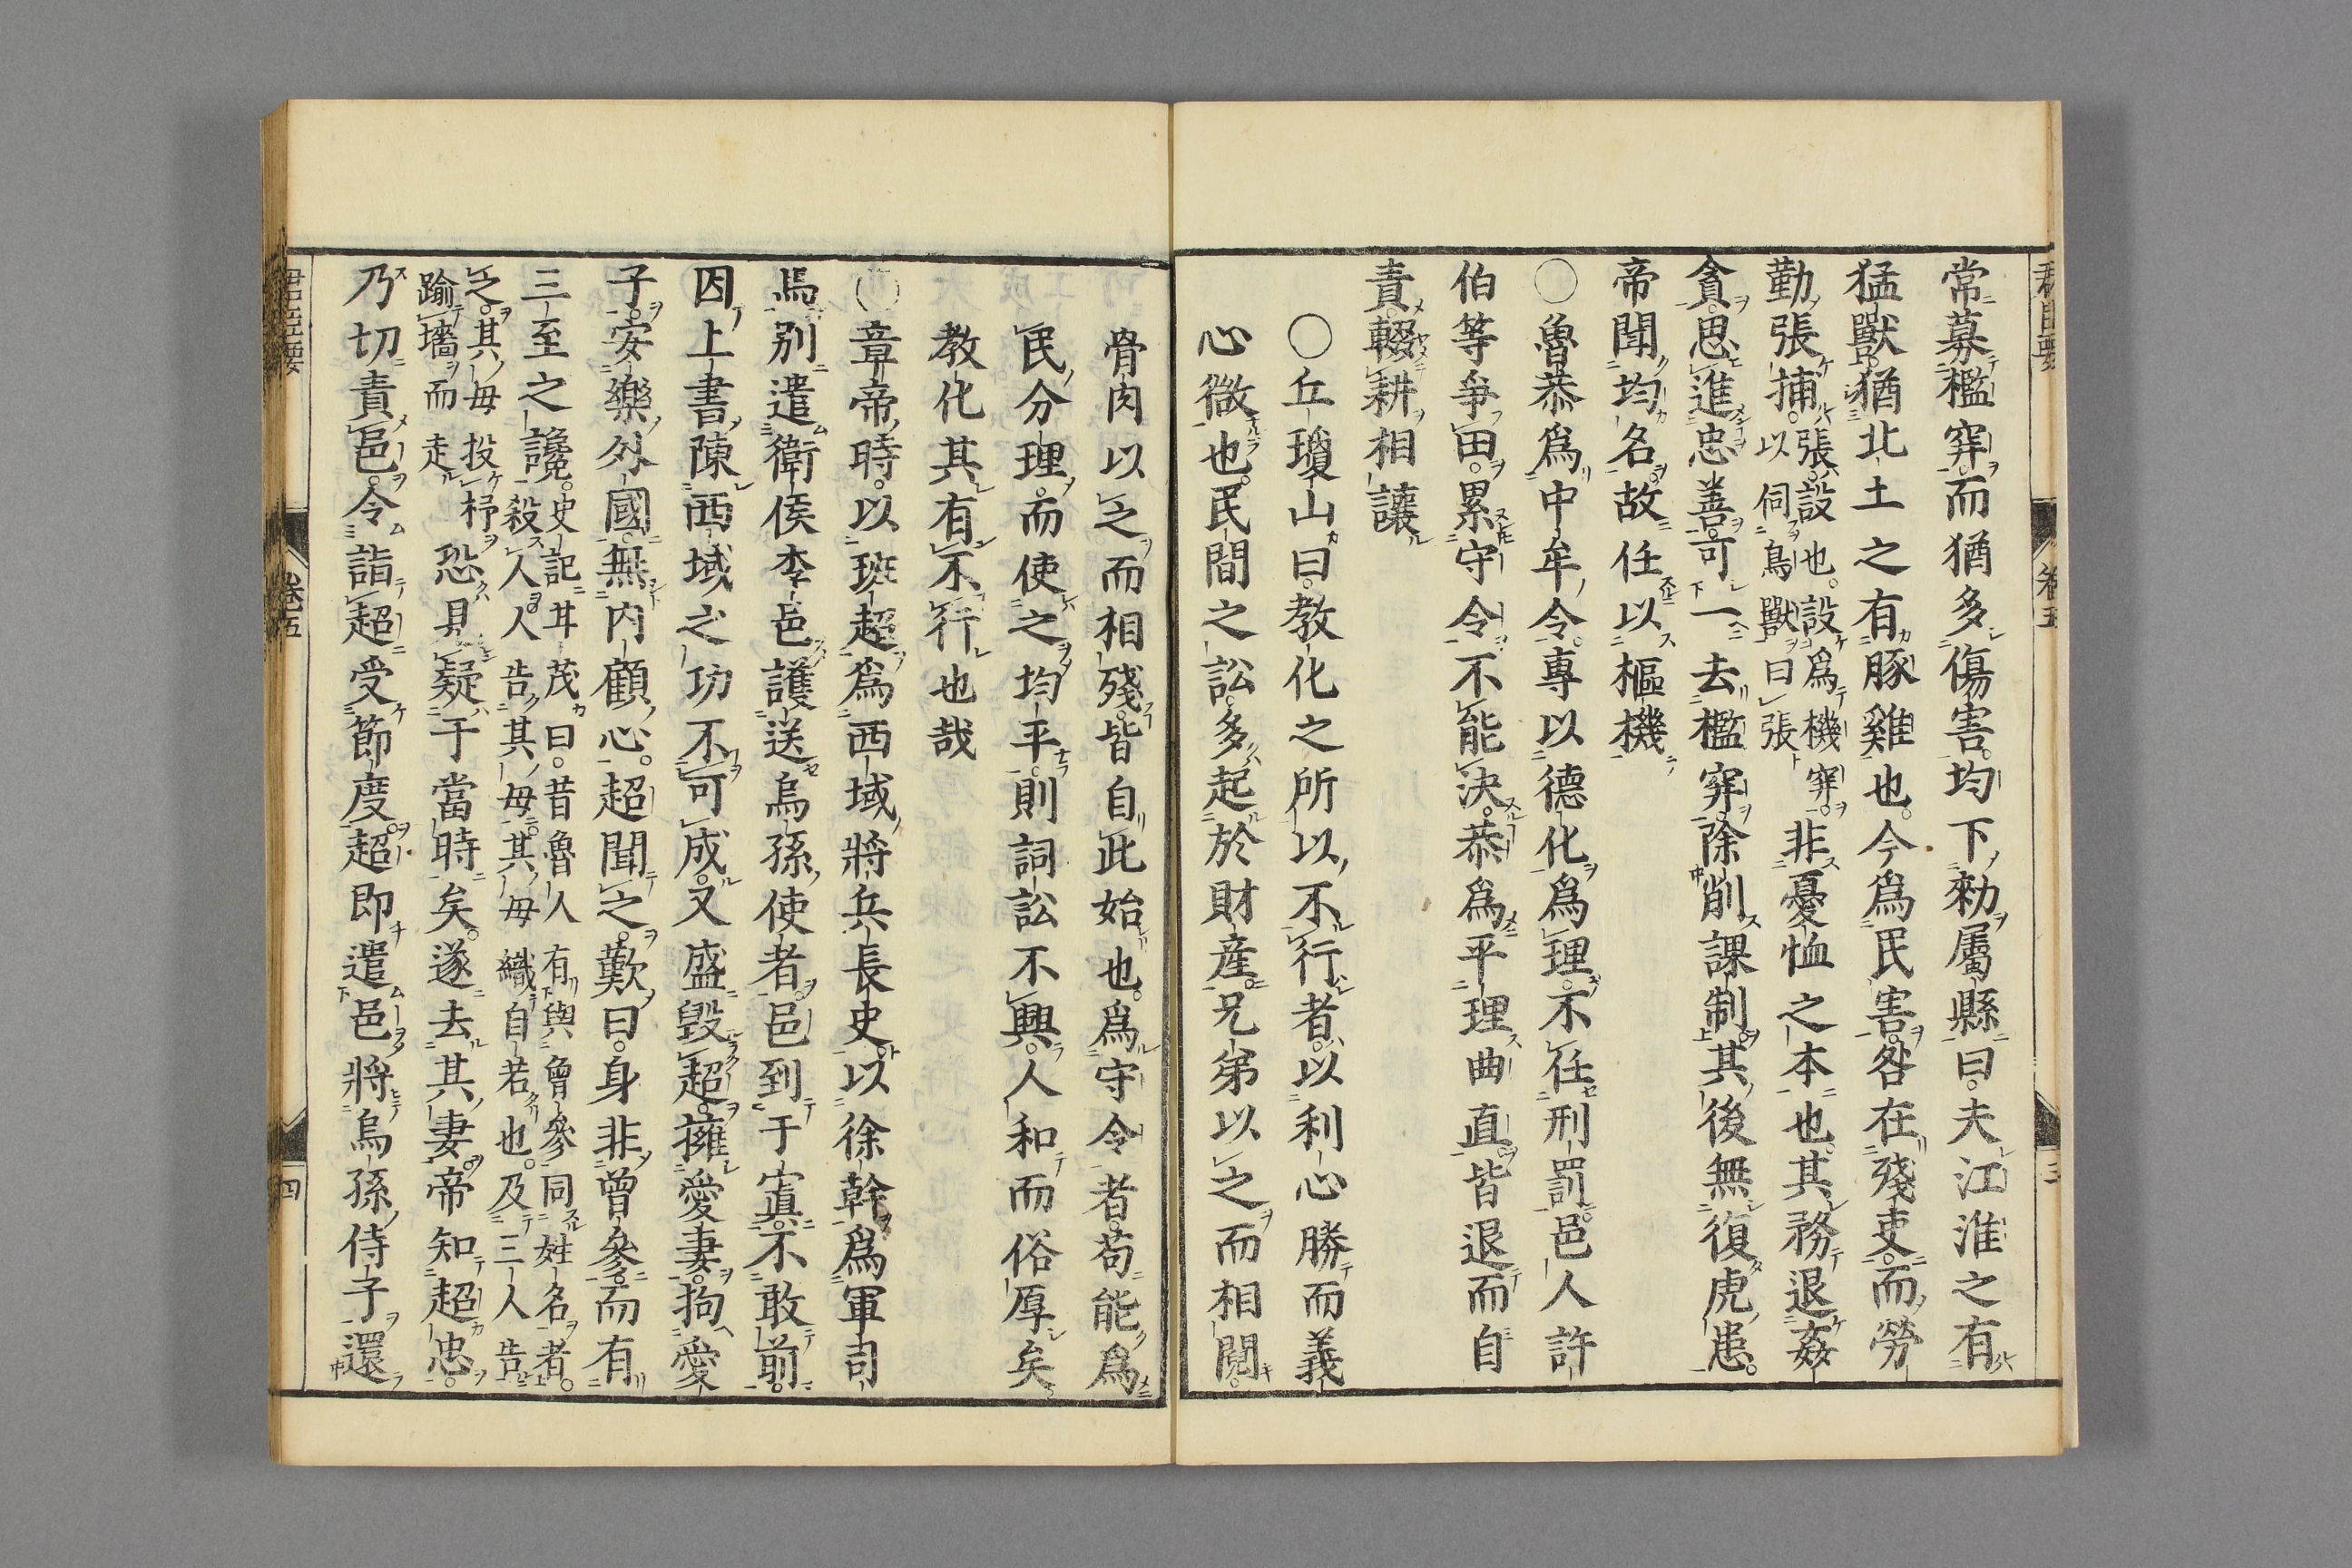 常募檻穽而猶多傷害均下勑屬縣曰夫江淮之有
猛獸猶北土之有豚雞也今爲民害咎在殘吏而勞
勤張捕張設也設爲機穽以伺鳥獸曰張非憂恤之本也其務退姦
貪思進忠善可一去檻穽除削課制其後無復虎患
帝聞均名故任以樞機
〇魯恭爲中牟令專以德化爲理不任刑罰邑人許
伯等爭田累守令不能決恭爲平理曲直皆退而自
責輟耕相讓
〇丘瓊山曰教化之所以不行者以利心勝而義
心微也民間之訟多起於財産兄弟以之而相鬩
骨肉以之而相殘皆自此始也爲守令者苟能爲
民分理而使之均平則詞訟不興人和而俗厚矣
教化其有不行也哉
〇章帝時以班超爲西域將兵長史以徐幹爲軍司
馬別遣衛侯李邑護送烏孫使者邑到于寘不敢前
因上書陳西域之功不可成又盛毀超擁愛妻抱愛
子安樂外國無内顧心超聞之歎曰身非曾參而有
三至之讒史記甘茂曰昔魯人有與曾參同姓名者殺人人告其母其母織自若也及三人告
之其母投杼踰墻而走恐見疑于當時矣遂去其妻帝知超忠
乃切責邑令詣超受節度超即遣邑將烏孫侍子還
卷五
四